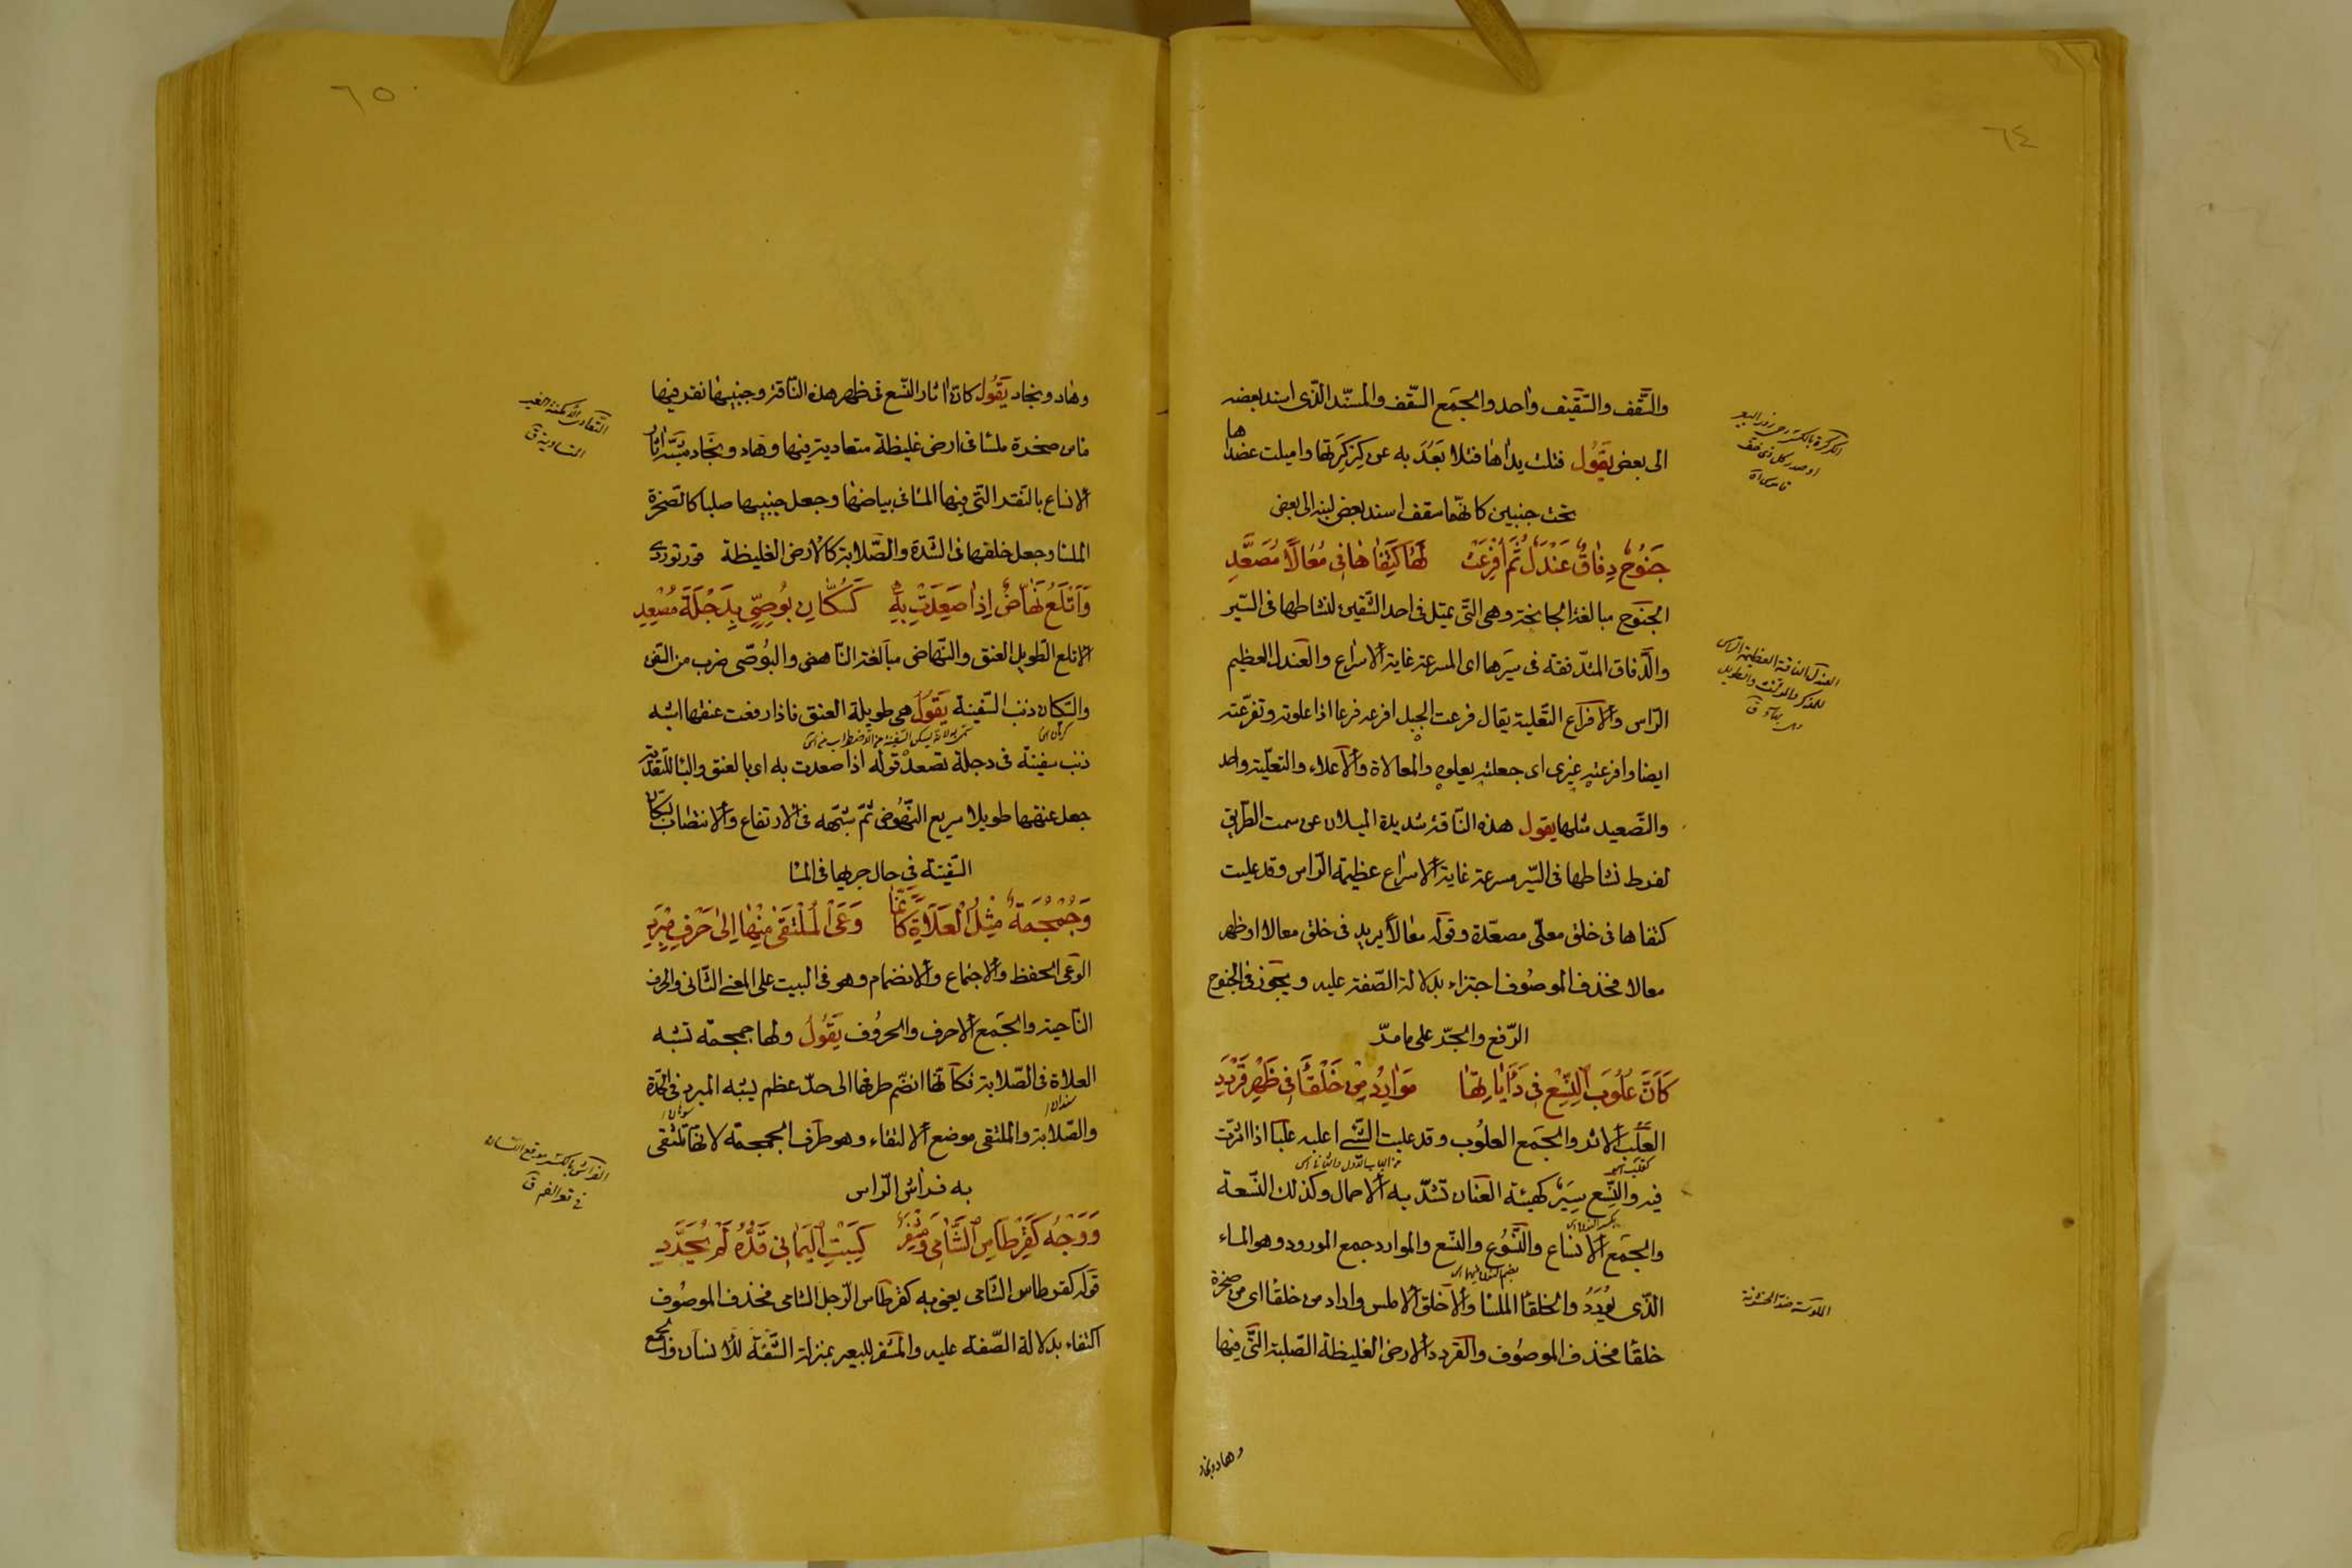 ٦٤
والسَّقف والسّقيف واحد والجمع السّقف والمسنّد الذّى اسند بعضه
الى بعض يقول فتلت يداها فتلا بَعُدَ به عن كِركِرتها واميلت عضداها
تحت جنبين كانّهما سقف اسند بعض لبنه الى بعض
جَنُوحٌ دِفاقٌ عَنْدَلٌ ثُمَّ اُفْرِعَتْ لَهٰا كَتِفٰاهٰا فى مُعٰالًا مُصَعَّدِ
الجنوح مبالغة الجانحة وهى التّى تميل فى احد الشّقين لنشاطها فى السّير
والدّفاق المتدّفقة فى سيرها اى المسرعة غاية الاسراع والعندل العظيم
الرّاس والافراع التّعلية يقال فرعت الجبل افرعه فرعا اذا علوته وتفرّعته
ايضا وافرعته غيرى اى جعلته يعلوه والمعالاة والاعلاء والتعلية واحد
والتّصعيد مثلها يقول هذه النّاقة شديدة الميلان عن سمت الطّريق
لفرط نشاطها فى السّير مسرعة غاية الاسراع عظيمة الرّاس وقد عليت
كتفاها فى خلق معلّى مصعّدة وقوله معالاً يريد فى خلق معالا او ظهر
معالا فحذف الموصُوف اجتزاء بدلالة الصّفة عليه ويجوز فى الجنوح
الرّفع والجرّ على ما مرّ
كَاَنَّ عُلُوبَ النِّسْعِ فى دَأَيٰاتِهٰا مَوٰارِدُ مِنْ خَلْقٰاَ فى ظَهْرِ قَرْدَدِ
العَلْب الاثر والجَمع العلُوب وقد علبت الشّئ اعلبه علبا اذا اثّرت
فيه والنّسع سير كهيئة العنان تشدّ به الاحمال وكذلك النّسعة
والجمع الانساع والنّسُوع والنّسع والموارد جمع المورد وهو الماء
الذّى يُورَدُ والخلقا الملسا والاخلق الاملس واراد من خلقا اى من صخرة
خلقا فحذف الموصُوف والقردد الارض الغليظة الصّلبة التّى فيها
وهاد ونجاد
الكركرة بالكسر رحى زور البعير
او صدر كل ذى خف
العندل الناقة العظيمة الراس
للمذكر والمؤنث والطويل
الملوسة ضد الخشونة
٦٥
وهاد ونجاد يَقُولُ كانّ اثار النّسع فى ظهر هذه النّاقة وجنبيها نقر فيها
ماء من صخرة ملسا فى ارض غليظة متعادية فيها وهاد ونجاد شبّه اثار
الانساع بالنقر التى فيها الماء فى بياضها وجعل جنبيها صلبا كالصّخرة
الملسا وجعل خلقها فى الشّدة والصّلابة كالارض الغليظة
وَاَتْلَعُ نَهّٰاضٌ اِذٰا صَعَدَتْ بِهِ كَسُكّٰانِ بُوصِىٍّ بِدِجْلَةَ مُصْعِدِ
الاتلع الطويل العنق والنّهاض مبالغة النّاهض والبُوصّى ضرب من السّفن
والسّكان ذنب السّفينة يَقُولُ هى طويلة العنق فاذا رفعت عنقها اشبه
ذنب سفينة فى دجلة تصعد قوله اذا صعدت به اى بالعنق والباء للتّعدية
جعل عنقها طويلا سريع النّهُوض ثمّ شبّهه فى الارتفاع والانتصاب بسكّان
السّفينة فى حال جريها فى الماء
وَجُمْجُمَةٌ مِثْلُ الْعَلاٰةِ كَاَنَّمٰا وَعَى الْمُلْتَقٰى مِنْهٰا اِلٰى حَرْفِ مِبْرَدِ
الوعى الحفظ والاجتماع والانضمام وهو فى البيت على المعنى الثّانى والحرف
النّاحية والجَمع الاحرف والحرُوف يَقُولُ ولها جمجمة تشبه
العلاة فى الصّلابة فكانّها انضّم طرفها الى حدّ عظم يشبه المبرد فى الحدّة
والصّلابة والملتقى موضع الالتقاء وهو طرف الجمجمة لانّها تلتقى
به فراش الرّاس
وَوَجْهٌ كَقِرْطٰاسِ الشَّاٰمِى وَمِشْفَرٌ كَسِبْتِ الْيَمٰانى قَدُّهُ لَمْ يُجَرَّدِ
قوله كقرطاس الشّامى يعنى به كقرطاس الرّجل الشامى فحذف الموصُوف
اكتفاء بدلالة الصّفة عليه والمشفر للبعير بمنزلة الشّفة للانسان والجمع
التعادى الامكنة الغير
المتساوية ق